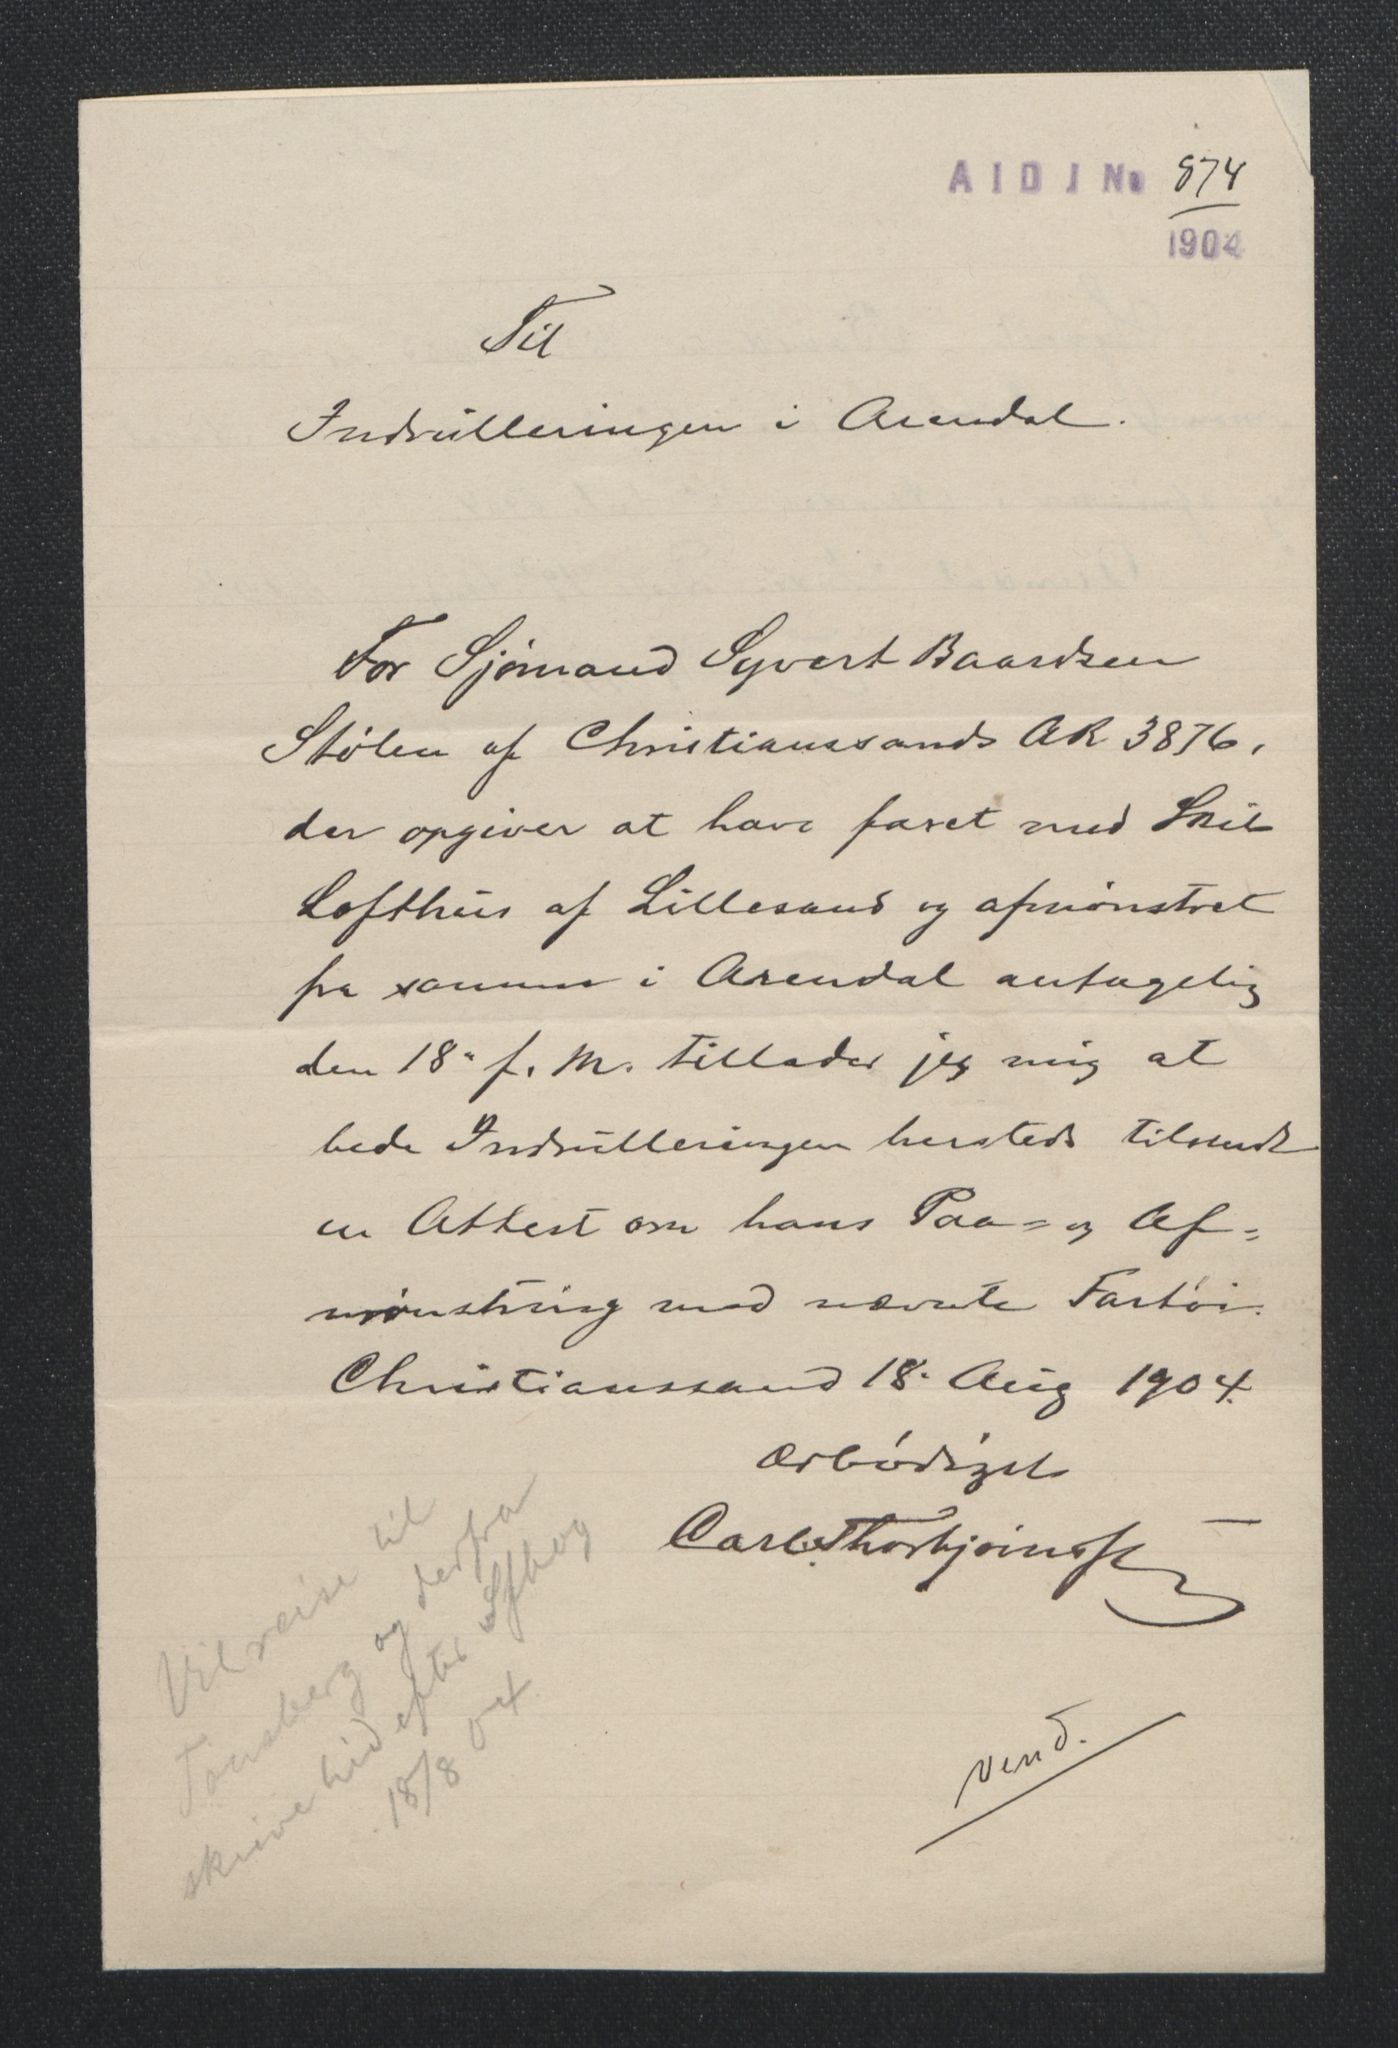 A I D J No 874
1904
Til
Indrulleringen i Arendal.
For Sjömand Syvert Baardsen
Stölen af Christianssands AR 3876,
der opgiver at have faret med Skib
Lofthus af Lillesand og afmönstret
fra samme i Arendal antagelig
den 18. f. M. tillader jeg mig at
bede Indrulleringen hersteds tilsendt
en Attest om hans Paa= og Af=
mönstring med nævnte Fartöi.
Christianssand 18. Aug 1904.
Ærbödigst
Carl Thorbjörnsen
Vil reise til
Tönsberg og derfra
skrive hid efter Sjfbog
18/8 04.
vend.